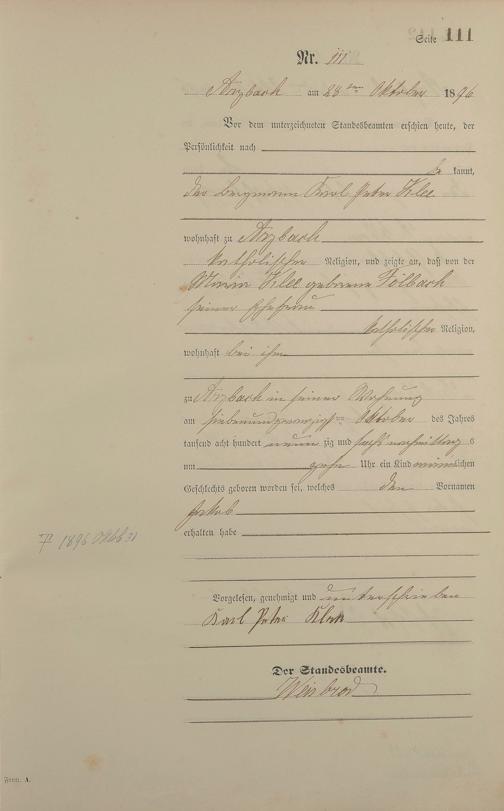 Seite 111
Nr. 111
Arzbach am 28ten Oktober 1896
Vor dem unterzeichneten Standesbeamten erschien heute, der
Persönlichkeit nach
be kannt,
der Bergmann Karl Peter Klee
wohnhaft zu Arzbach
katholischer Religion, und zeigte an, daß von der
Maria Klee geborene Fölbach
seiner Ehefrau
katholischer Religion,
wohnhaft bei ihm
zu Arzbach in seiner Wohnung
am siebenundzwanzigsten Oktober des Jahres
tausend acht hundert neun zig und sechs nachmittag s
um zehn Uhr ein Kind männlichen
Geschlechts geboren worden sei, welches den Vornamen
Jakob
erhalten habe
1896
Vorgelesen, genehmigt und unterschrieben
Karl Peter Klee
Der Standesbeamte.
Weisbrod
Form. A.